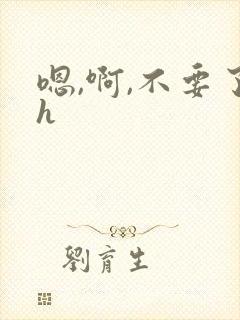 嗯,啊,不要了
h
劉育生